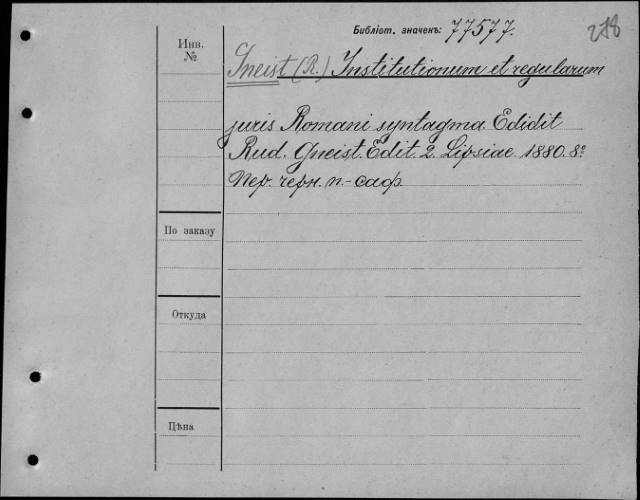 Библіот. значекъ: 77577.
218
Инв. №
Gneist (R.) Institutionum et regularum
juris Romani syntagma. Edidit
Rud. Gneist. Edit. 2. Lipsiae. 1880. 8º
Пер. черн. п.-саф.
По заказу
Откуда
Цѣна